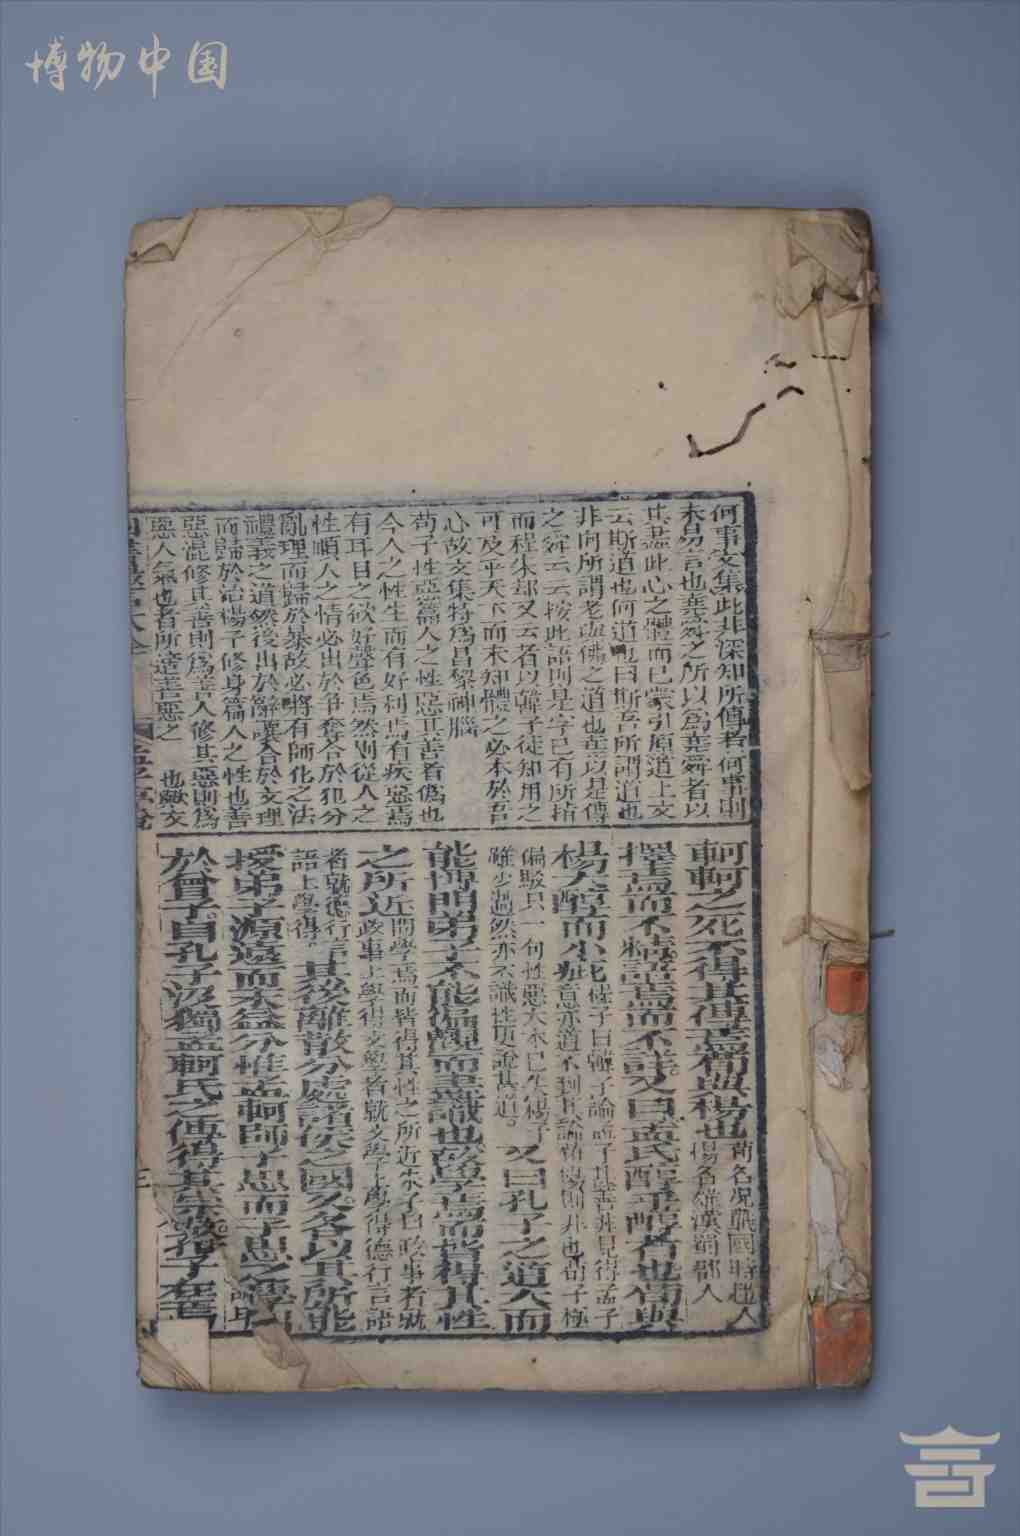 博物中国
何事文集此非深知所傳者何事則
未易言也堯舜之所以為堯舜者以
其盡此心之體而已蒙引原道上文
云斯道也何道也曰斯吾所謂道也
非向所謂老與佛之道也堯以是傳
之舜云云按此語則是字已有所指
而程朱却又云者以韓子徒知用之
可及乎天下而未知體之必本於吾
心故文集特為昌黎神腦
荀子性惡篇人之性惡其善者偽也
今人之性生而有好利焉有疾惡焉
有耳目之欲好聲色焉然則從人之
性順人之情必出於爭奪合於犯分
亂理而歸於暴故必將有師化之法
禮義之道然後出於辭讓合於文理
而歸於治楊子修身篇人之性也善
惡混修其善則為善人修其惡則為
惡人氣也者所適善惡之 也歟文
軻軻之死不得其傳焉荀與楊也
荀名况戰國時趙人
楊名雄漢蜀郡人
擇焉而不精語焉而不詳又曰孟氏醇乎醇者也荀與
楊大醇而小疵
程子曰韓子論孟子甚善非見得孟子
意亦道不到其論荀楊則非也荀子極
偏駁只一句性惡大本已失楊子
雖少過然亦不識性更說甚道。
又曰孔子之道大而
能博門弟子不能徧觀而盡識也故學焉而皆得其性
之所近
問學焉而皆得其性之所近朱子曰政事者就
政事上學得文學者就文學上學得德行言語
者就德行言
語上學得。
其後離散分處諸侯之國又各以其所能
授弟子源遠而末益分惟孟軻師子思而子思之學出
於曾子自孔子沒獨孟軻氏之傳得其宗故